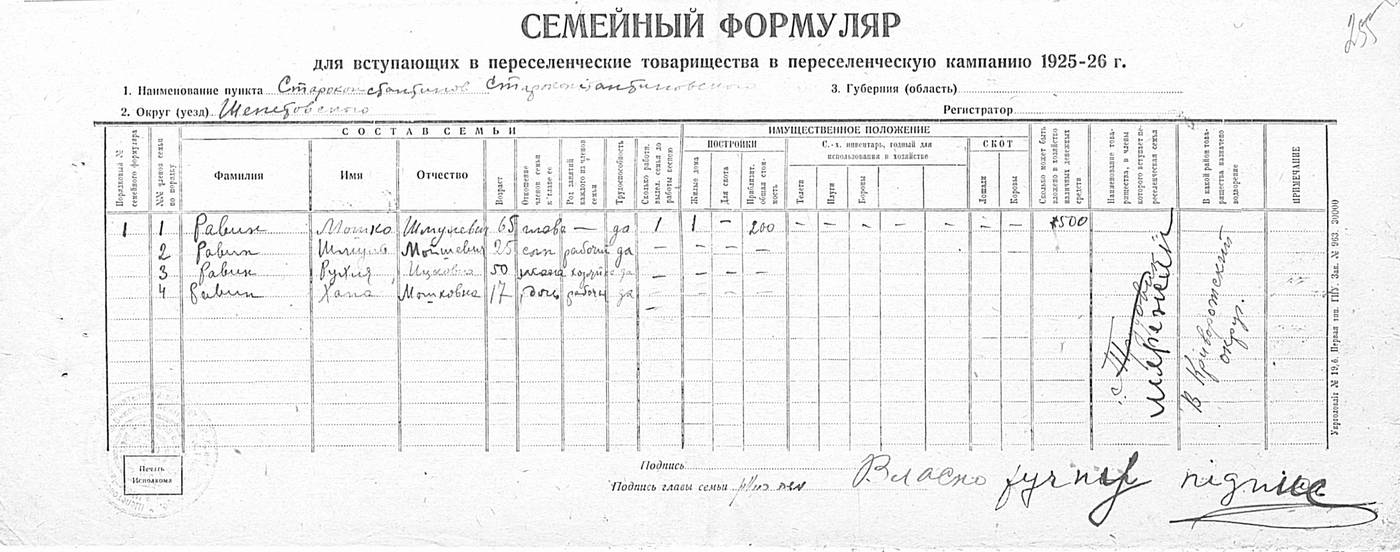 255
СЕМЕЙНЫЙ ФОРМУЛЯР
для вступающих в переселенческие товарищества в переселенческую кампанию 1925-26 г.
1. Наименование пункта Староконстантинов Староконстантиновского 3. Губерния (область)
2. Округ (уезд) Шепетовского Регистратор
СОСТАВ СЕМЬИ ИМУЩЕСТВЕННОЕ ПОЛОЖЕНИЕ
ПОСТРОЙКИ С.-х. инвентарь, годный для использования в хозяйстве СКОТ
Порядковый № семейного формуляра №№ членов семьи по порядку Фамилия Имя Отчество Возраст Отношение членов семьи к главе ее Род занятий каждого из членов семьи Трудоспособность Сколько работн. высел. семья до работы весною Жилые дома Для скота Приблизит. общая стоимость Телеги Плуги Бороны Лошади Коровы Сколько может быть вложено в хозяйство наличных денежных средств Наименование товарищества, в члены которого вступает переселенческая семья В какой район товарищества назначено водворение ПРИМЕЧАНИЕ
1 1 Равин Мошко Шмулевич 65 глава — да 1 1 — 200 — — — — — — — 500
2 Равин Шмуль Мошкевич 25 сын рабочий да — — —
3 Равин Рухля Ицковна 50 жена хозяйка да — — —
4 Равин Хана Мошковна 17 дочь рабоч да — — —
В Криворотский округ.
Печать Исполкома
Подпись
Подпись главы семьи
Власно ручний підпис
Укрголовліт № 19,6. Первая тип. ГПУ. Зак. № 963. 30000